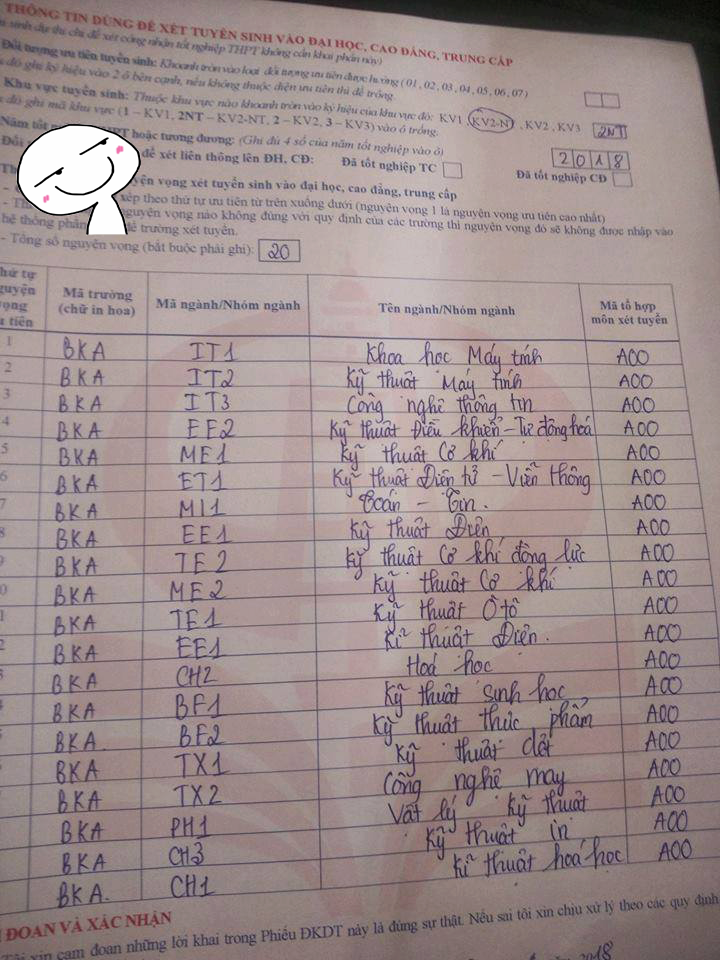 THÔNG TIN DÙNG ĐỂ XÉT TUYỂN SINH VÀO ĐẠI HỌC, CAO ĐẲNG, TRUNG CẤP
sinh dự thi chỉ để xét công nhận tốt nghiệp THPT không cần khai phần này)
Đối tượng ưu tiên tuyển sinh: Khoanh tròn vào loại đối tượng ưu tiên được hưởng (01, 02, 03, 04, 05, 06, 07)
đó ghi ký hiệu vào 2 ô bên cạnh, nếu không thuộc diện ưu tiên thì để trống.
Khu vực tuyển sinh: Thuộc khu vực nào khoanh tròn vào ký hiệu của khu vực đó: KV1, KV2-NT, KV2, KV3
đó ghi mã khu vực (1 – KV1, 2NT – KV2-NT, 2 – KV2, 3 – KV3) vào ô trống. 2NT
Năm tốt PT hoặc tương đương: (Ghi đủ 4 số của năm tốt nghiệp vào ô) 2018
Đối để xét liên thông lên ĐH, CĐ: Đã tốt nghiệp TC Đã tốt nghiệp CĐ
yện vọng xét tuyển sinh vào đại học, cao đẳng, trung cấp
xếp theo thứ tự ưu tiên từ trên xuống dưới (nguyện vọng 1 là nguyện vọng ưu tiên cao nhất)
nguyện vọng nào không đúng với quy định của các trường thì nguyện vọng đó sẽ không được nhập vào
hệ thống phần để trường xét tuyển.
- Tổng số nguyện vọng (bắt buộc phải ghi): 20
hứ tự guyện vọng tiên Mã trường (chữ in hoa) Mã ngành/Nhóm ngành Tên ngành/Nhóm ngành Mã tổ hợp môn xét tuyển
1 BKA IT1 Khoa học Máy tính A00
2 BKA IT2 Kỹ thuật Máy tính A00
3 BKA IT3 Công nghệ thông tin A00
4 BKA EE2 Kỹ thuật Điều khiển - Tự động hoá A00
5 BKA ME1 Kỹ thuật Cơ khí A00
6 BKA ET1 Kỹ thuật Điện tử - Viễn thông A00
7 BKA MI1 Toán - Tin. A00
8 BKA EE1 Kỹ thuật Điện A00
9 BKA TE2 Kỹ thuật Cơ khí động lực A00
0 BKA ME2 Kỹ thuật Cơ khí A00
1 BKA TE1 Kỹ thuật Ô tô A00
2 BKA EE1 Kĩ thuật Điện. A00
3 BKA CH2 Hoá học A00
BKA BF1 Kỹ thuật sinh học A00
BKA. BF2 Kỹ thuật thực phẩm A00
BKA TX1 Kỹ thuật dệt A00
BKA TX2 Công nghệ may A00
BKA PH1 Vật lý kỹ thuật A00
BKA CH3 Kỹ thuật in A00
BKA. CH1 Kĩ thuật hoá học A00
ĐOAN VÀ XÁC NHẬN
Tôi xin cam đoan những lời khai trong Phiếu ĐKDT này là đúng sự thật. Nếu sai tôi xin chịu xử lý theo các quy định
2018